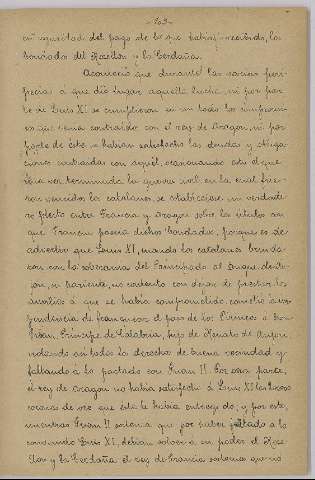 -103-
en seguridad del pago de lo que habían recibido, los
condados del Rosellón y la Cerdaña.
Aconteció que durante las varias peri-
pecias á que dió lugar aquella lucha ni por par-
te de Luis XI se cumplieron en un todo los compromi-
sos que tenía contraidos con el rey de Aragon, ni por
parte de éste se habían satisfecho las deudas y obliga-
ciones contraidas con aquél, ocasionando esto el que
una vez terminada la guerra civil en la cual fue-
ron vencidos los catalanes, se estableciese un verdade-
ro pleito entre Francia y Aragon sobre los títulos con
que Francia poseía dichos Condados, porque es de
advertir que Luis XI, cuando los catalanes brinda-
ron con la soberanía del Principado al Duque de An-
jou, su pariente, no contento con dejar de prestar los
auxilios á que se había comprometido, cometió á im-
prudencia de franquear el paso de los Pirineos á Don
Juan, Príncipe de Calabria, hijo de Renato de Anjou
violando así todo derecho de buena vecindad y
faltando á lo pactado con Juan II. Por otra parte,
el rey de Aragon no había satisfecho á Luis XI las
coronas de oro que éste le había entregado, y por esto,
mientras Juan II sostenía que por haber faltado á lo
convenido Luis XI, debían volver á su poder el Rose-
llón y la Cerdaña el rey de Francia sostenía que no